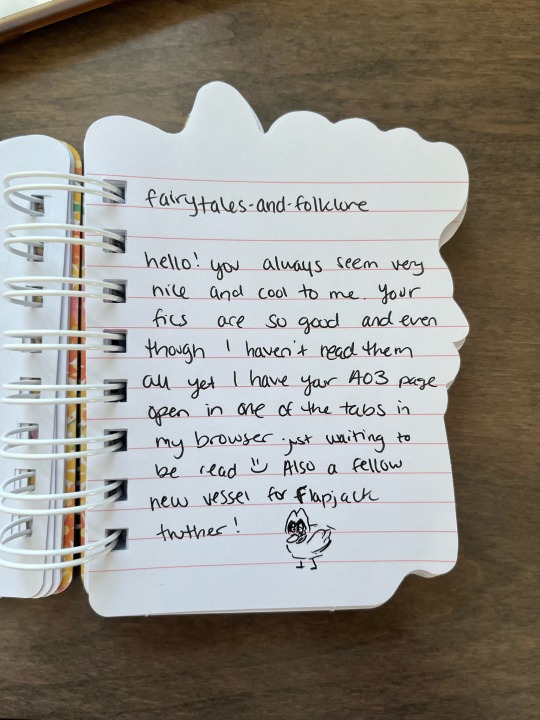 fairytales-and-folklore
hello! you always seem very
nice and cool to me. Your
fics are so good and even
though I haven't read them
all yet I have your AO3 page
open in one of the tabs in
my browser just waiting to
be read Also a fellow
new vessel for Flapjack
truther!